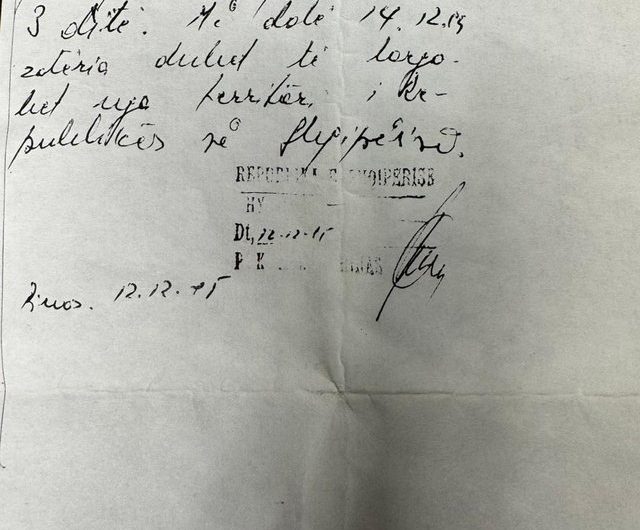 3 ditë. Më datë 14.12.95
zotëria duhet të largo-
het nga territori i Re-
publikës së Shqipërisë.
REPUBLIKA E SHQIPERISE
HY
Dt, 12.12.95
P K
12.12.95